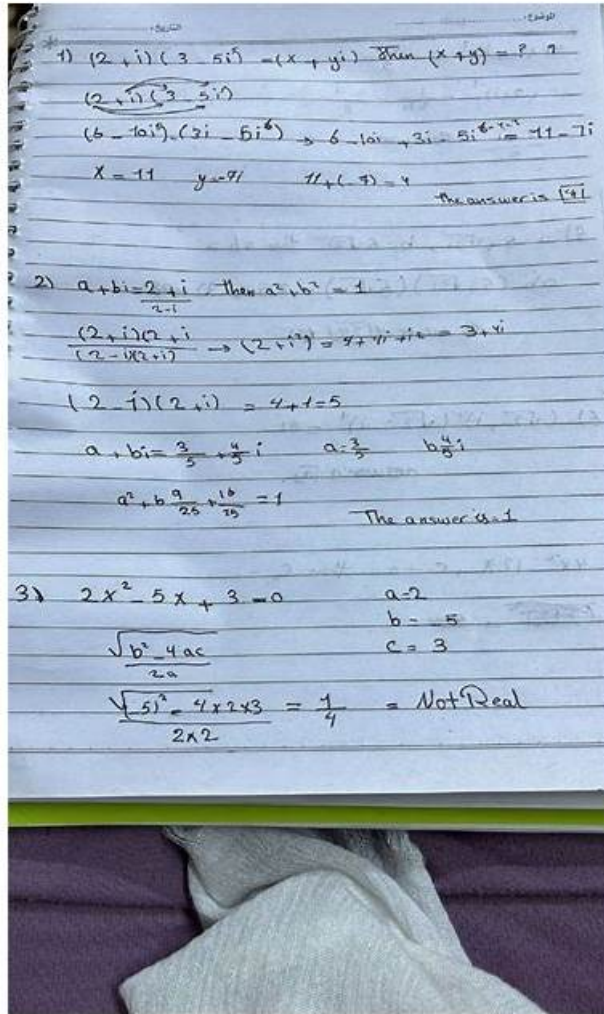 التاريخ: الموضوع:
1) (2 + i) (3 - 5i⁵) = (x + yi) then (x + y) = ? ?
(2 + i) (3 - 5i⁵)
(6 - 10i⁵) - (3i - 5i⁶) → 6 - 10i + 3i - 5i⁶ = 11 - 7i
x = 11 y = -7i 11 + (-7) = 4
The answer is 4
2) a + bi = 2 + i / 2 - i then a² + b² = 1
(2 + i)(2 + i / (2 - i)(2 + i) → (2 + i²) = 4 + 4i + i² = 3 + 4i
(2 - i)(2 + i) = 4 + 1 = 5
a + bi = 3/5 + 4/5 i a = 3/5 b 4/5 i
a² + b 9/25 + 16/25 = 1
The answer is = 1
3) 2x² - 5x + 3 = 0 a = 2
b = -5
√b² - 4ac / 2a c = 3
√(5)² - 4 x 2 x 3 / 2 x 2 = 1/4 = Not Real